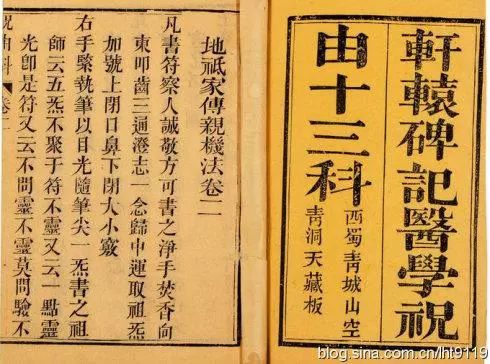 軒轅碑記醫學祝
由十三科
西蜀青城山空
青洞天藏板
地祇家傳親機法卷二
凡書符察人誠敬方可書之淨手焚香向
東叩齒三通澄志一念歸中運取祖炁
加號上閉口鼻下閉大小竅
右手緊執筆以目光隨筆尖一炁書之祖
師云五炁不聚于符不靈又云一點靈
光卽是符又云不問靈不靈莫問驗不
祝由科 卷二
blog.sina.com.cn/lht9119